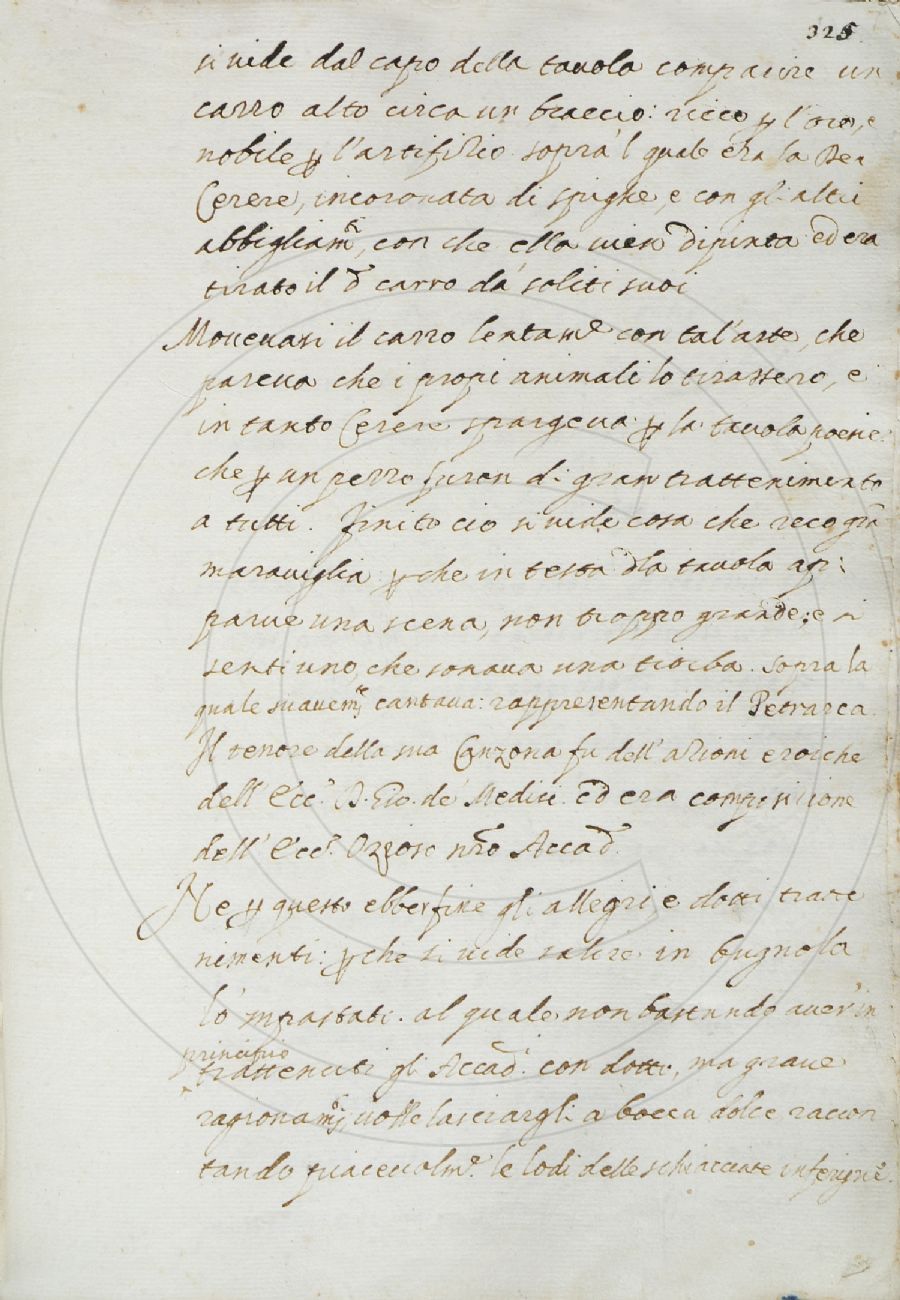 325
si vide dal capo della tavola comparire un
carro alto circa un braccio: ricco p l'oro, e
nobile p l'artifizio sopra 'l quale era la Dea
Cerere, incoronata di spighe, e con gli altri
abbigliam.ti, con che ella vien dipinta ed era
tirato il d.o carro da soliti suoi
Movevasi il carro lentam.e con tal'arte, che
pareva che i propi animali lo tirassero, e
in tanto Cerere spargeva p la tavola poesie
che p un pezzo furon di gran trattenimento
a tutti. Finito cio si vide cosa che reco gra
maraviglia pche in testa dla tavola ap:
parve una scena, non troppo grande; e si
senti uno, che sonava una tiorba sopra la
quale suavem.te cantava: rappresentando il Petrarca
Il tenore della sua Canzona fu dell'azioni eroiche
dell'Ecc.o D. Gio. de' Medici ed era composizione
dell'Ecc.o Ozzioso nro Accad.
Ne p questo ebber fine gli allegri e dotti tratte
nimenti: pche si vide salire in bugnola
lo'nfastati. al quale non bastando aver in
principio
trattenuti gli Accad. con dotti, ma grave
ragionam.ti, volle lasciargli a bocca dolce raccon
tando piacevolm.e le lodi delle schiacciate inferigne.